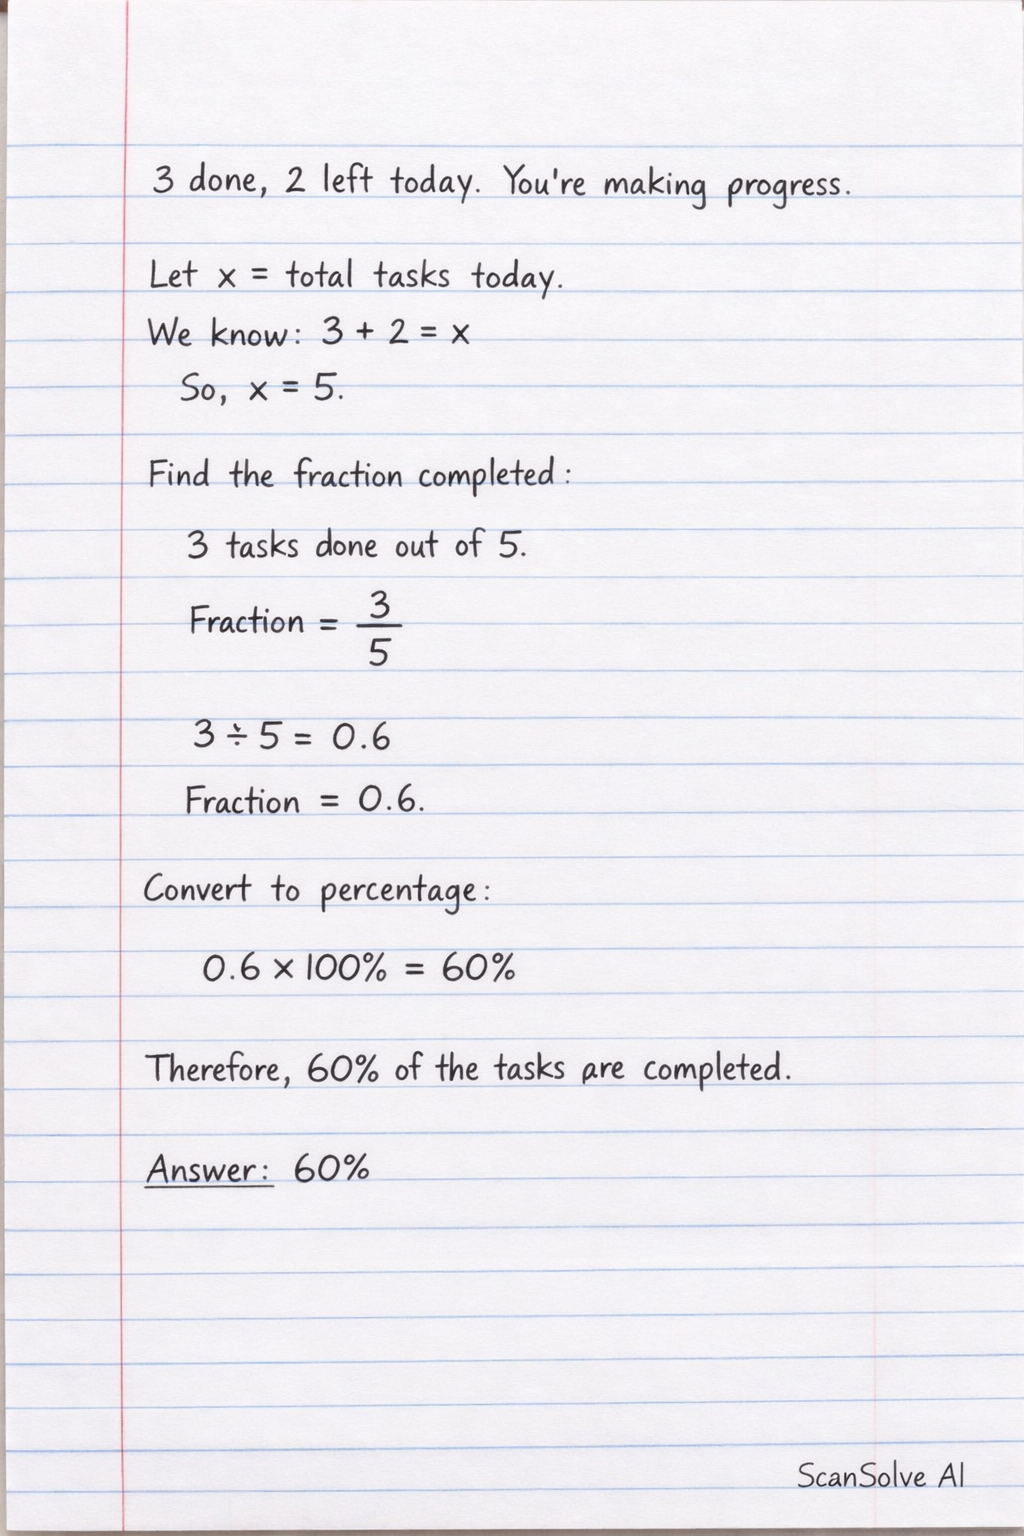 3 done, 2 left today. You're making progress.
Let x = total tasks today.
We know: 3 + 2 = x
So, x = 5.
Find the fraction completed:
3 tasks done out of 5.
Fraction = 3/5
3 ÷ 5 = 0.6
Fraction = 0.6.
Convert to percentage:
0.6 × 100% = 60%
Therefore, 60% of the tasks are completed.
Answer: 60%
ScanSolve AI